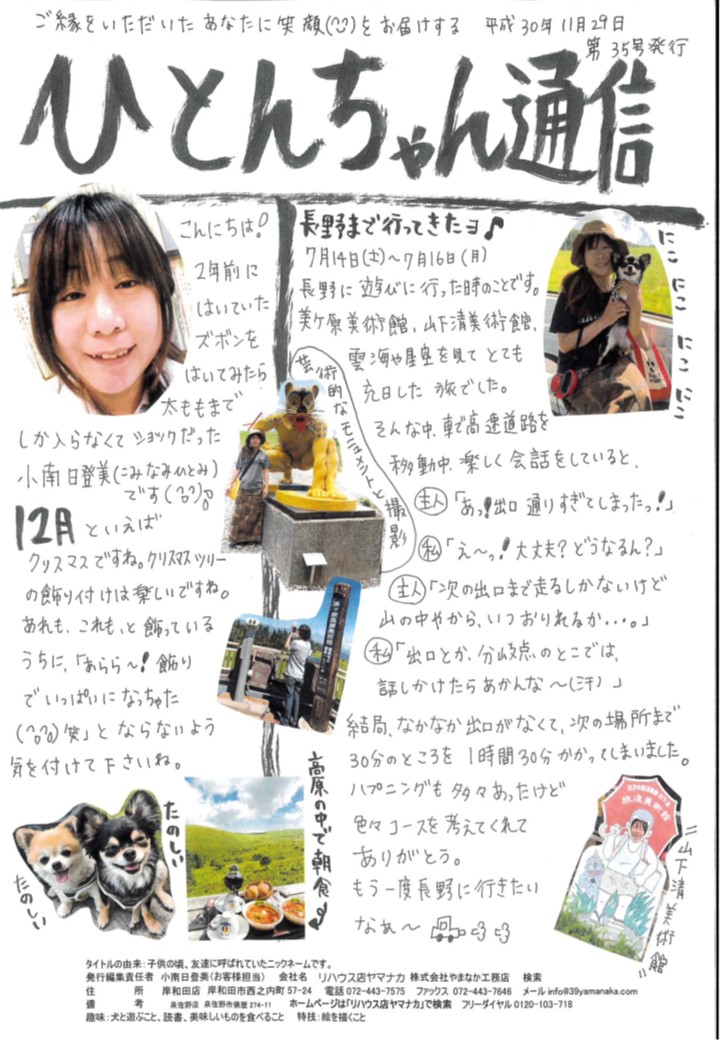 ご縁をいただいた あなたに笑顔(^_^)をお届けする 平成30年11月29日
第35号発行
ひとんちゃん通信
こんにちは!
2年前に
はいていた
ズボンを
はいてみたら
太ももまで
しか入らなくてショックだった
小南日登美(こみなみひとみ)
です
12月といえば
クリスマスですね。クリスマスツリー
の飾り付けは楽しいですね。
あれも、これも、と飾っている
うちに、「あらら〜!飾り
でいっぱいになっちゃた
笑」とならないよう
気を付けて下さいね。
たのしい
たのしい
長野まで行ってきたヨ♪
7月14日(土)〜7月16日(月)
長野に遊びに行った時のことです。
美ケ原美術館、山下清美術館、
雲海や星座を見てとても
充日した旅でした。
そんな中、車で高速道路を
移動中、楽しく会話をしていると、
主人「あっ!出口通りすぎてしまったっ!」
私「え〜っ!大丈夫?どうなるん?」
主人「次の出口まで走るしかないけど
山の中やから、いつおりれるか・・・。」
私「出口とか、分岐点のとこでは、
話しかけたらあかんな〜(汗)」
結局、なかなか出口がなくて、次の場所まで
30分のところを1時間30分かかってしまいました。
ハプニングも多々あったけど
色々コースを考えてくれて
ありがとう。
もう一度長野に行きたい
なぁ〜
にこ にこ にこ にこ
芸術的なモニュメントと撮影
高原の中で朝食
放浪美術館
=山下清美術館=
タイトルの由来:子供の頃、友達に呼ばれていたニックネームです。
発行編集責任者 小南日登美(お客様担当) 会社名 リハウス店ヤマナカ 株式会社やまなか工務店 検索
住 所 岸和田店 岸和田市西之内町57-24 電話 072-443-7575 ファックス 072-443-7646 メール info@39yamanaka.com
備 考 泉佐野店 泉佐野市俵屋274-11 ホームページは「リハウス店ヤマナカ」で検索 フリーダイヤル 0120-103-718
趣味:犬と遊ぶこと、読書、美味しいものを食べること 特技:絵を描くこと